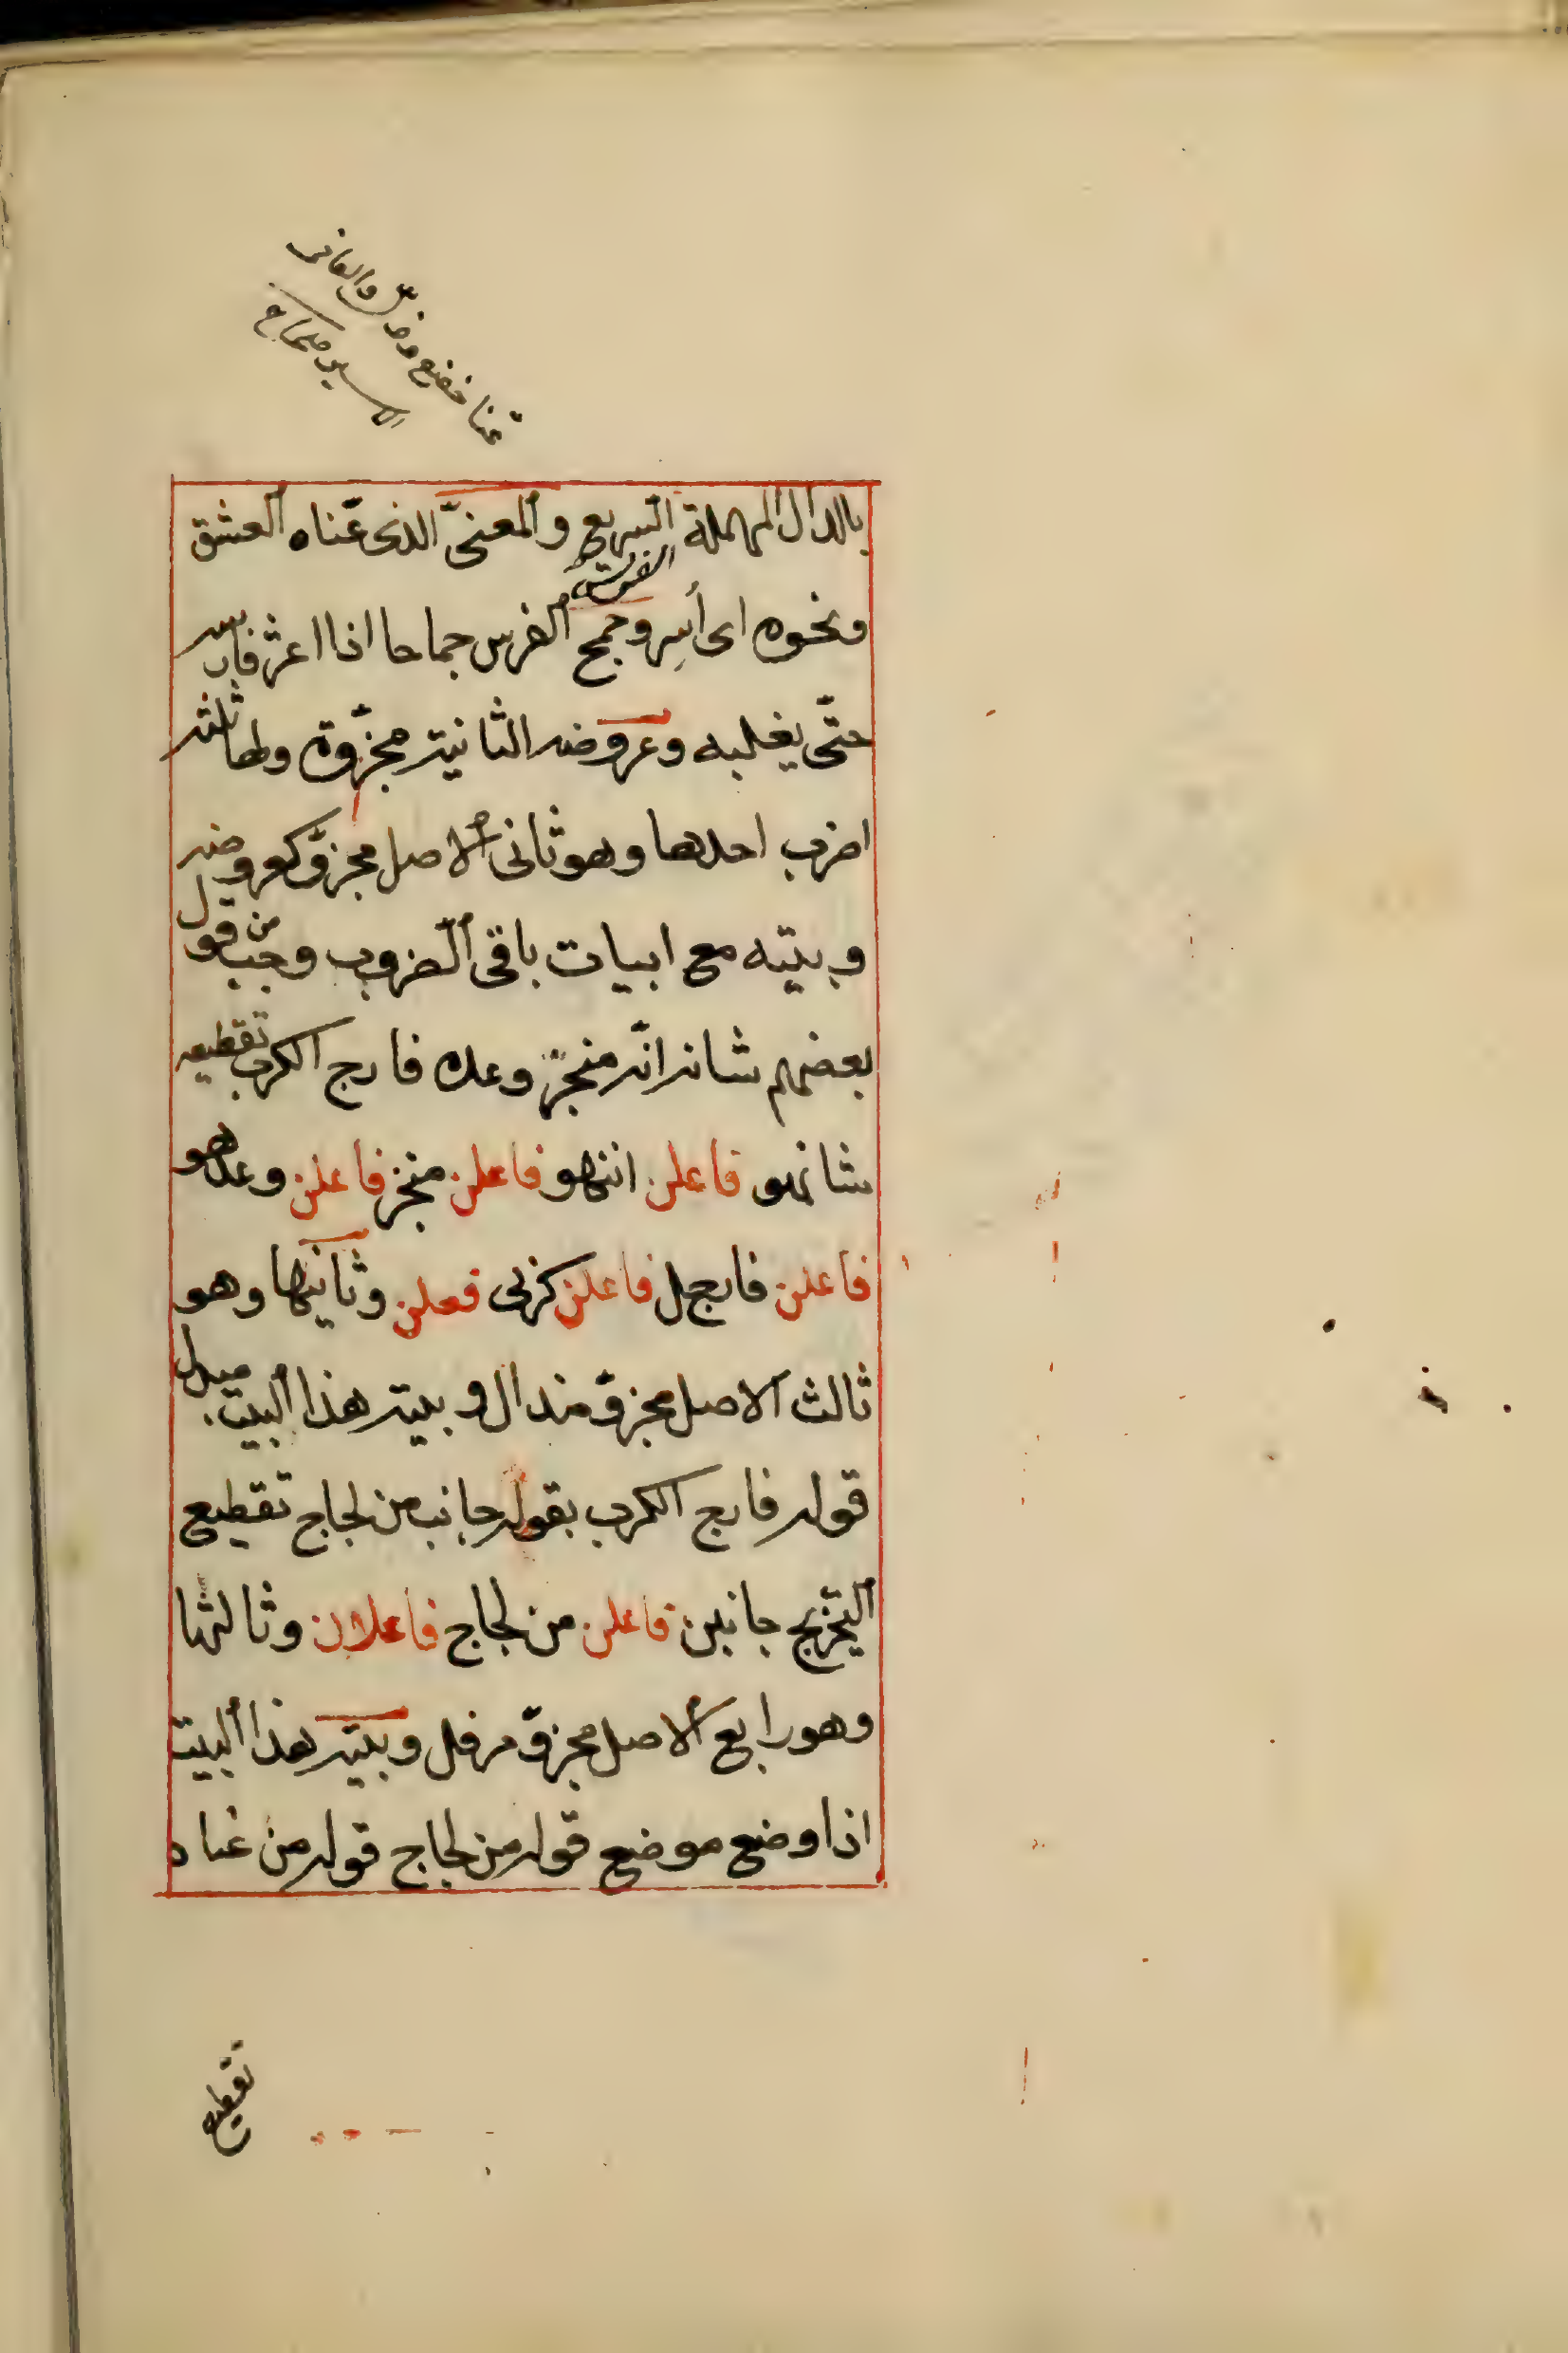 عنا خضع وذلّ والعانى
الاسير صحاح
بالدال المهملة السريع والمعنىّ الذى عنّاه العشق
الفرس
ونحوه اى أسِر وجمح الفرس جماحا اذا اعثر فارسه
حتّى يغلبه وعروضه الثانية مجزّوة ولها ثلثة
اضرب احدها وهو ثانى الاصل مجزّو كعروضه
وبيته مع ابيات باقى الضروب وجب من قول
بعضهم شانه انّه منجز وعده فارج الكرب تقطيعه
شانهو فاعلن اننهو فاعلن منجز فاعلن وعدهو
فاعلن فارجل فاعلن كربى فعلن وثانيها وهو
ثالث الاصل مجزوّ مذال وبيته هذا البيت مبدل
قوله فارج الكرب بقوله جانب من لجاج تقطيع
التخريج جانبن فاعلن من لجاج فاعلان وثالثها
وهو رابع الاصل مجزوّ مرفل وبيته هذا البيت
اذا وضع موضع قوله من لجاج قوله من عناد
تقطيع